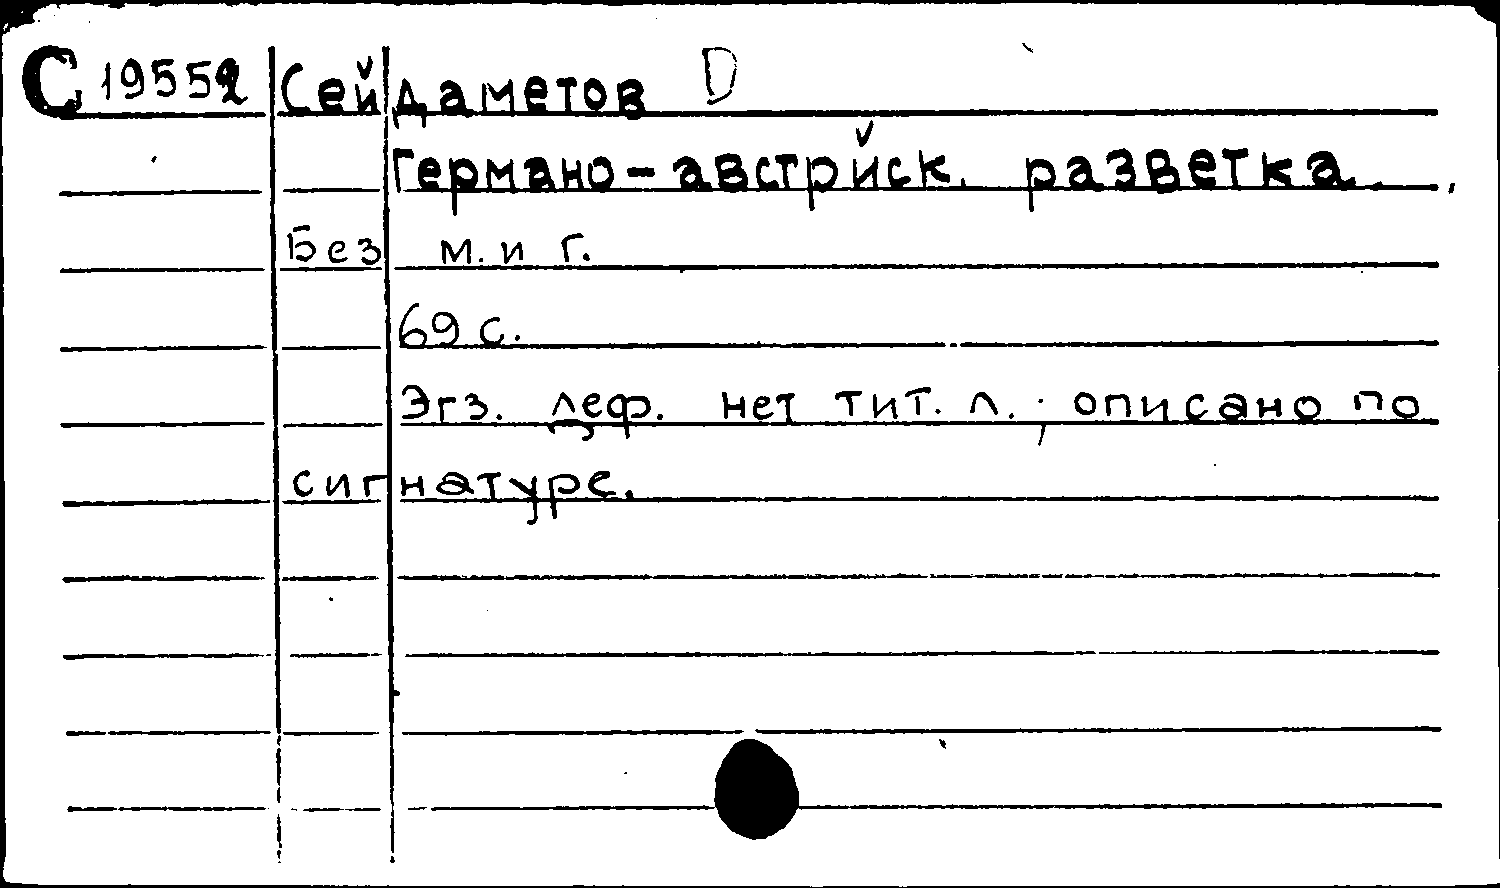 С 19552 Сейдаметов D
Германо-австрйск. разветка.
Без м. и г.
69 с.
Экз. деф. нет тит. л.; описано по
сигнатуре.